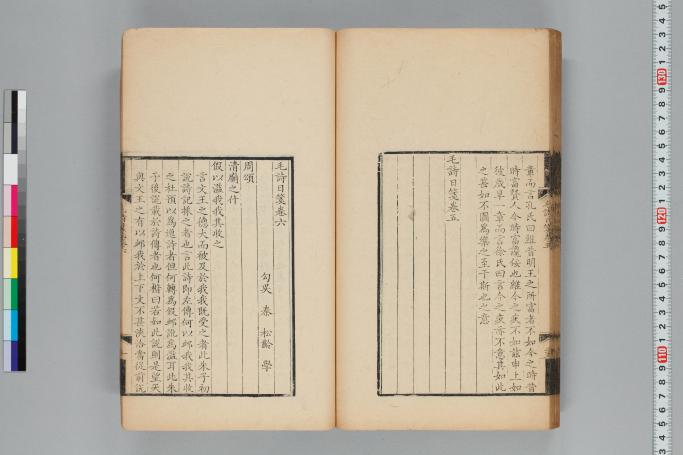 章而言孔氏曰雖昔明王之所富者不如今之時昔
時富賢人今時富讒佞也維今之疚不如茲申上如
彼歲旱一章而言徐氏曰言今之疚亦不意其如此
之甚如不圖為樂之至于斯也之意
毛詩日箋卷五
毛詩日箋卷六
勾吳 秦 松齡 學
周頌
清廟之什
假以溢我我其收之
言文王之德大而被及於我我既受之者此朱子初
說詩記據之者也言此詩即左傳何以恤我我其收
之杜預以為逸詩者但何轉為假恤訛為溢耳此朱
子後說載於詩傳者也何楷曰若如此說則是望天
與文王之有以恤我於上下文不甚浹洽當從前說